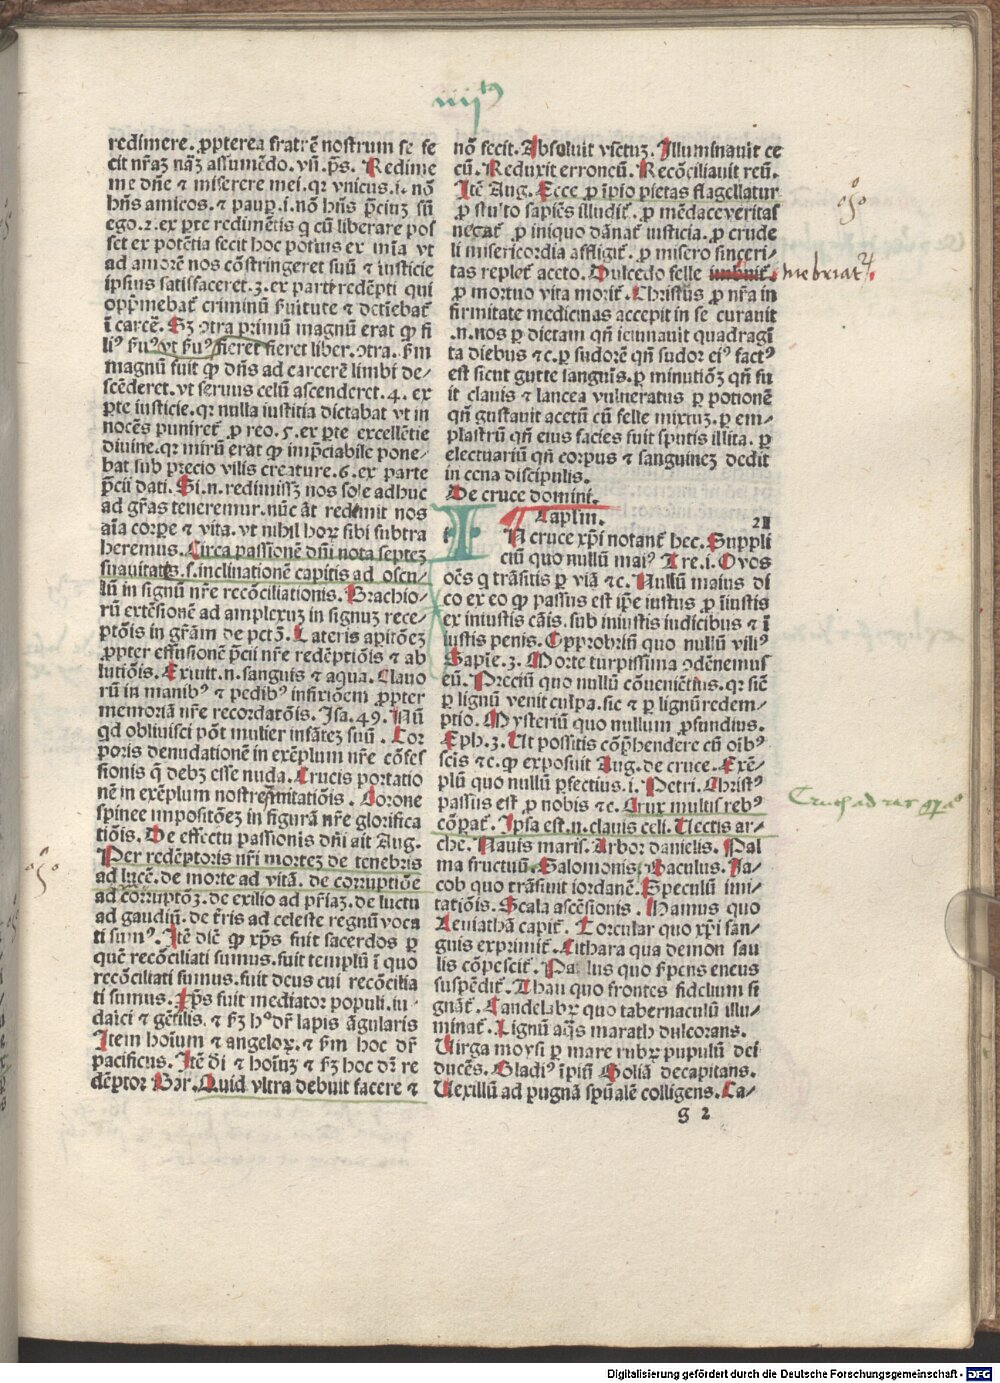 iiijtꝰ
redimere. ꝓpterea fratrē nostrum se fe
cit nr̄aꝫ nāꝫ assumēdo. vn̄. p̄s. Redime
me dn̄e ⁊ miserere mei. qꝛ vnicus .i. nō
hn̄s amicos. ⁊ paup̲ .i. nō hn̄s p̄ciuꝫ sū
ego. 2. ex p̲te redimētis q cū liberare pos
set ex potētia fecit hoc potius ex mīa vt
ad amorē nos cōstringeret suū ⁊ iusticie
ipsius satisfaceret. 3. ex parti redēpti qui
opp̄mebat̄ criminū s̄uitute ⁊ detīebat̄
ī carcē. Sꝫ ↄtra primū magnū erat ꝙ fi
liꝰ s̄uꝰ vt s̄uꝰ fieret fieret liber. ↄtra. s̄m
magnū fuit ꝙ dn̄s ad carcerē limbi de⸗
scēderet. vt seruus celū ascenderet. 4. ex
p̲te iusticie. qꝛ nulla iustitia dictabat vt in
nocēs puniret̄ ꝓ reo. 5. ex p̲te excellētie
diuine. qꝛ mirū erat ꝙ imp̄ciabile pone⸗
bat sub precio vilis creature. 6. ex parte
p̄cii dati. Si .n. redimissꝫ nos sole adhuc
ad gr̄as teneremur. nūc āt redimit nos
aīa corpe ⁊ vita. vt nihil hoꝝ sibi subtra
heremus. Circa passionē dn̄i nota septeꝫ
suauitates .s. inclinationē capitis ad oscu⸗
lū in signū nr̄e recōciliationis. Brachio⸗
rū extēsionē ad amplexuꝫ in signuꝫ rece⸗
ptōis in gr̄am de pctō. Lateris apitōeꝫ
ꝓpter effusionē p̄cii nr̄e redēptiōis ⁊ ab
lutiōis. Exiuit .n. sanguis ⁊ aqua. Clauo
rū in manibꝰ ⁊ pedibꝰ infixiōem ꝓpter
memoriā nr̄e recordatōis. Isa. 49. Nū
qd obliuisci pōt mulier infāteꝫ suū. Cor
poris denudationē in exēplum nr̄e cōfes
sionis q̄ debꝫ esse nuda. Crucis portatio
nē in exēplum nostre pnītatiōis. Corone
spinee impositōeꝫ in figurā nr̄e glorifica
tiōis. De effectu passionis dn̄i ait Aug.
Per redēptoris nr̄i morteꝫ de tenebris
ad lucē. de morte ad vitā. de corruptiōe
ad corruptōꝫ. de exilio ad pr̄iaꝫ. de luctu
ad gaudiū. de t̄ris ad celeste regnū voca
ti sumꝰ. Itē dic̄ ꝙ xp̄s fuit sacerdos p̲
quē recōciliati sumus. fuit templū ī quo
recōciliati sumus. fuit deus cui recōcilia
ti sumus. Xp̄s fuit mediator populi. iu⸗
daici ⁊ gētilis. ⁊ s̄ꝫ hꝰ dr̄ lapis āgularis
Item hoīum ⁊ angeloꝝ. ⁊ s̄m hoc dr̄
pacificus. Itē dī ⁊ hoīuꝫ ⁊ s̄ꝫ hoc dr̄ re
dēptor Bar. Quid vltra debuit facere ⁊
nō fecit. Absoluit vīctuꝫ. Illuminauit ce
cū. Reduxit erroncū. Recōciliauit reū.
Itē Aug. Ecce ꝓ īpio pietas flagellatur
ꝓ stulto sapiēs illudit̄. ꝓ mēdace veritas
negat̄ ꝓ iniquo dānat̄ iusticia. ꝓ crude
li misericordia affligit̄. ꝓ misero sinceri⸗
tas replet̄ aceto. Dulcedo felle inebriatꝝ.
ꝓ mortuo vita morit̄. Christus ꝓ nr̄a in
firmitate medicinas accepit in se curauit
.n. nos p̲ dietam qn̄ ieiunauit quadragī
ta diebus ⁊ c. p̲ sudorē qn̄ sudor eiꝰ factꝰ
est sicut gutte sanguīs. p̲ minutiōꝫ qn̄ fu
it clauis ⁊ lancea vulneratus p̲ potionē
qn̄ gustauit acetū cū felle mixtuꝫ. p̲ em⸗
plastrū qn̄ eius facies fuit sputis illita. p̲
electuariū qn̄ corpus ⁊ sanguineꝫ dedit
in cena discipulis.
De cruce domini.
¶ Caplm. 21
IN cruce xp̄i notant̄ hec. Suppli
ciū quo nullū maiꝰ Tre. i. O vos
oēs q trāsitis p̲ viā ⁊c. Nullū maius di
co ex eo ꝙ passus est ip̄e iustus ꝓ īiustis
ex iniustis cāis. sub iniustis iudicibus ⁊ ī
iustis penis. Opprobriū quo nullū viliꝰ
Sapīe. 3. Morte turpissima ↄdēnemus
eū. Preciū quo nullū cōueniētius. qꝛ sic̄
p̲ lignū venit culpa. sic ⁊ p̲ lignū redem⸗
ptio. Mysteriū quo nullum ꝓfundius.
Eph. 3. Ut possitis cōp̄hendere cū oībꝰ
scīs ⁊c. ꝙ exposuit Aug. de cruce. Exē⸗
plū quo nullū p̲fectius. i. Petri. Christꝰ
passus est ꝓ nobis ⁊c. Crux multis rebꝰ
cōpat̄. Ipsa est .n. clauis celi. Uectis ar⸗
che. Nauis maris. Arbor danielis. Pal
ma fructuū. Salomonis Baculus. Ja⸗
cob quo trāsiuit iordanē. Speculū imi⸗
tatiōis. Scala ascēsionis. Hamus quo
Leuiathā capit̄. Torcular quo xp̄i san⸗
guis exprimit̄. Cithara qua demon sau
lis cōpescit̄. Palus quo s̄pens eneus
suspēdit̄. Thau quo frontes fidelium si
gnāt̄. Candelabꝝ quo tabernaculū illu⸗
minat̄. Lignū aq̄s marath dulcorans.
Uirga moysi p̲ mare rubꝝ pupulū dei
ducēs. Gladiꝰ īpiū Goliā decapitans.
Uexillū ad pugnā spūalē colligens. La⸗
g 2
Digitalisierung gefördert durch die Deutsche Forschungsgemeinschaft - DFG